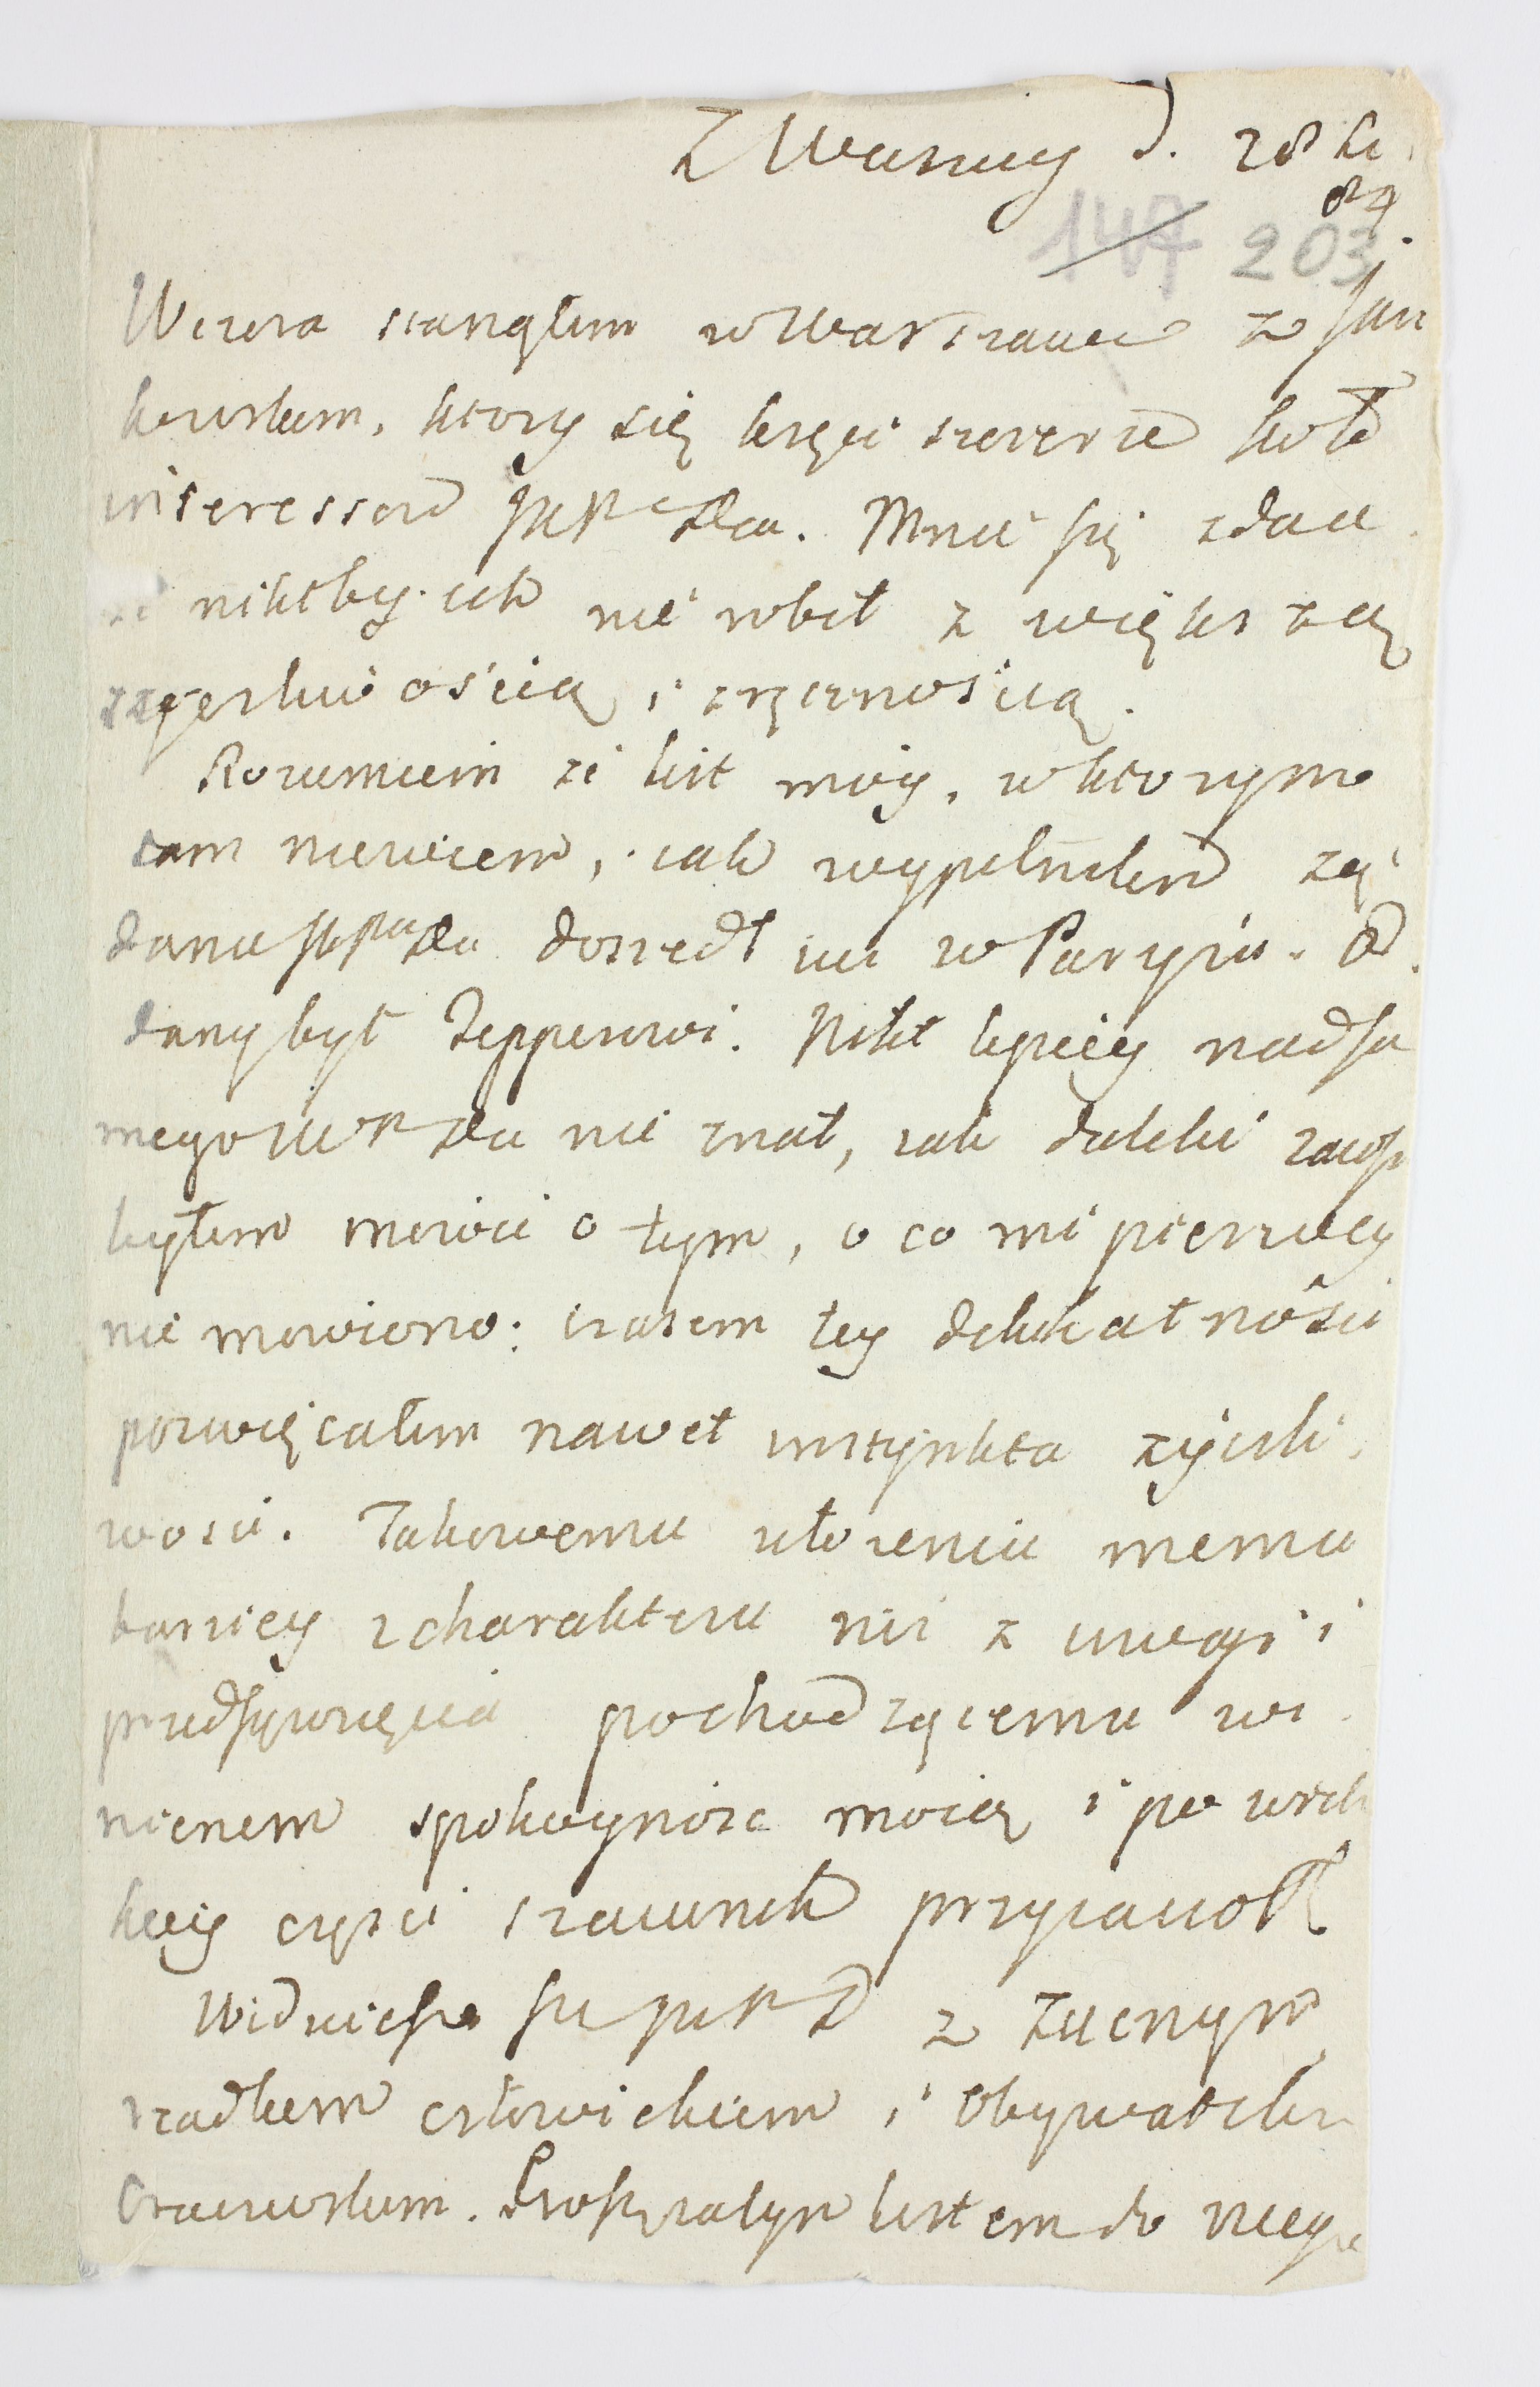 Z Warszawy d. 28 Li
84.
147 203
Wczora stanąłem w Warszawie z Jan
kowskim, ktory się kręci szczerze koło
interessow JWP Dza. Mnie się zdaie
że niktby ich nie robił z większą
szczerliwością i zręcznością.
Rozumiem że list moy, w ktorym
sam niewiem, iak wypełniłem żą
danie JWPana Dza doszedł iuż w Paryżu. Od
dany był Tepperowi. Nikt lepiey nad sa
mego JWP Dza nie znał, iak daleki zawsze
byłem mowić o tym, o co mi pierwey
nie mowiono: czasem tey delikatności
poswięcałem nawet instynkta życzli
wosci. Takowemu ułożeniu memu
barziey z charakteru niż z uwagi i
przedsięwzięcia pochodzącemu wi
nienem spokoyność moią i po wiel
kiey części szacunek przyiacioł
Widzicie się JWP D z zacnym
rzadkiem człowiekiem i Obywatelem
Proszę załym listem do niego